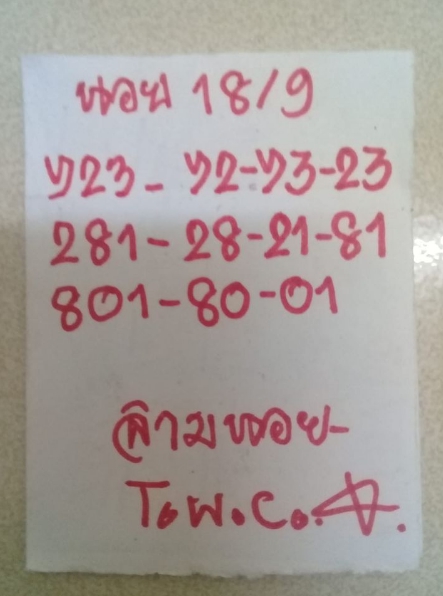 หวย 18/9
723- 72-73-23
281-28-21-81
801-80-01
ล้ามหวย-
T.พ.C.